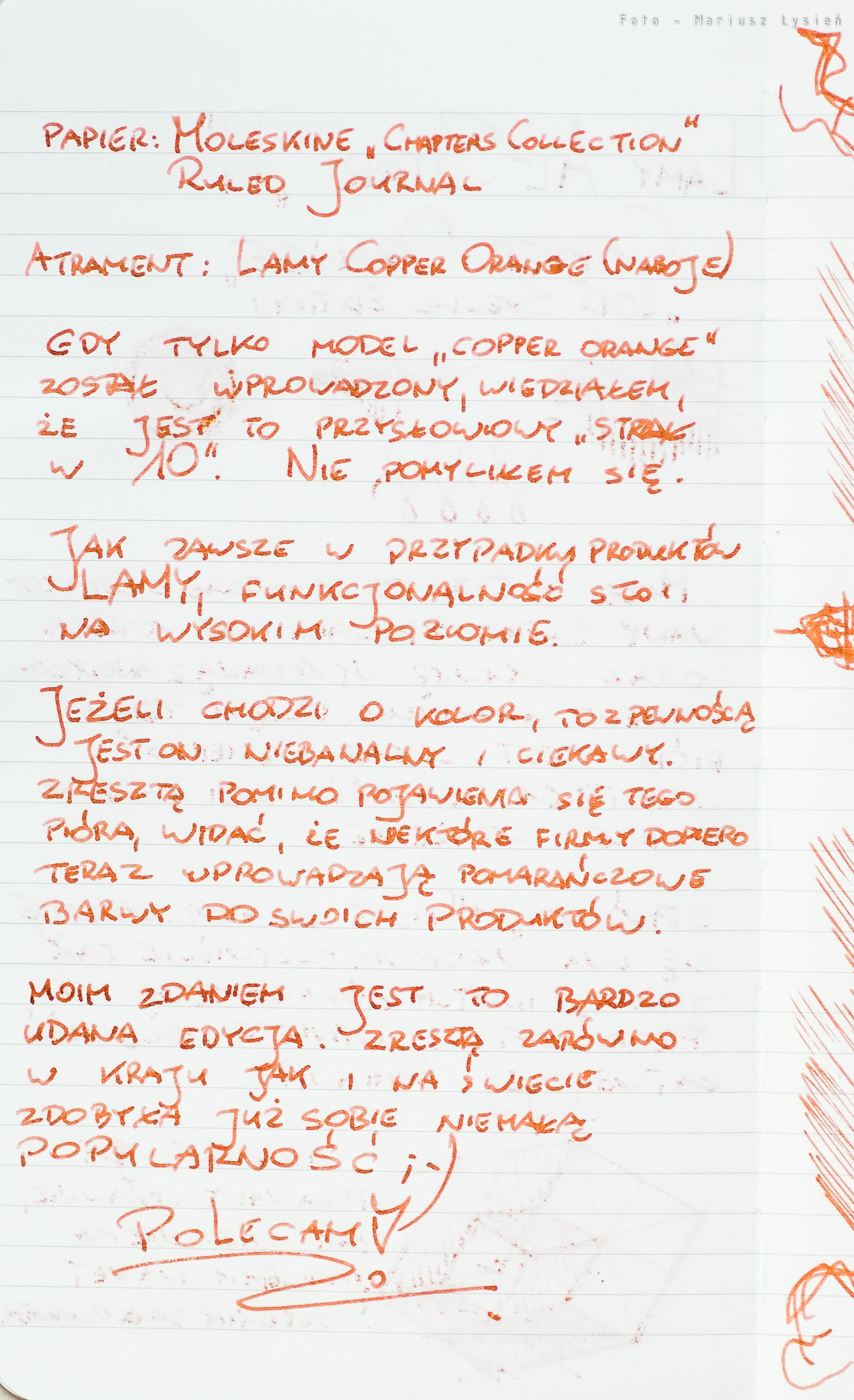 Foto - Mariusz Łysień
PAPIER: MOLESKINE „CHAPTERS COLLECTION”
RULED JOURNAL
ATRAMENT: LAMY COPPER ORANGE (NABOJE)
GDY TYLKO MODEL „COPPER ORANGE”
ZOSTAŁ WPROWADZONY, WIEDZIAŁEM,
ŻE JEST TO PRZYSŁOWIOWY „STRZAŁ
W 10”. NIE POMYLIŁEM SIĘ.
JAK ZAWSZE W PRZYPADKU PRODUKTÓW
LAMY, FUNKCJONALNOŚĆ STOI
NA WYSOKIM POZIOMIE.
JEŻELI CHODZI O KOLOR, TO Z PEWNOŚCIĄ
JEST ON NIEBANALNY I CIEKAWY.
ZRESZTĄ POMIMO POJAWIENIA SIĘ TEGO
PIÓRA, WIDAĆ, ŻE NIEKTÓRE FIRMY DOPIERO
TERAZ WPROWADZAJĄ POMARAŃCZOWE
BARWY DO SWOICH PRODUKTÓW.
MOIM ZDANIEM JEST TO BARDZO
UDANA EDYCJA. ZRESZTĄ ZARÓWNO
W KRAJU JAK I NA ŚWIECIE
ZDOBYŁA JUŻ SOBIE NIEMAŁĄ
POPULARNOŚĆ ;-)
POLECAMY